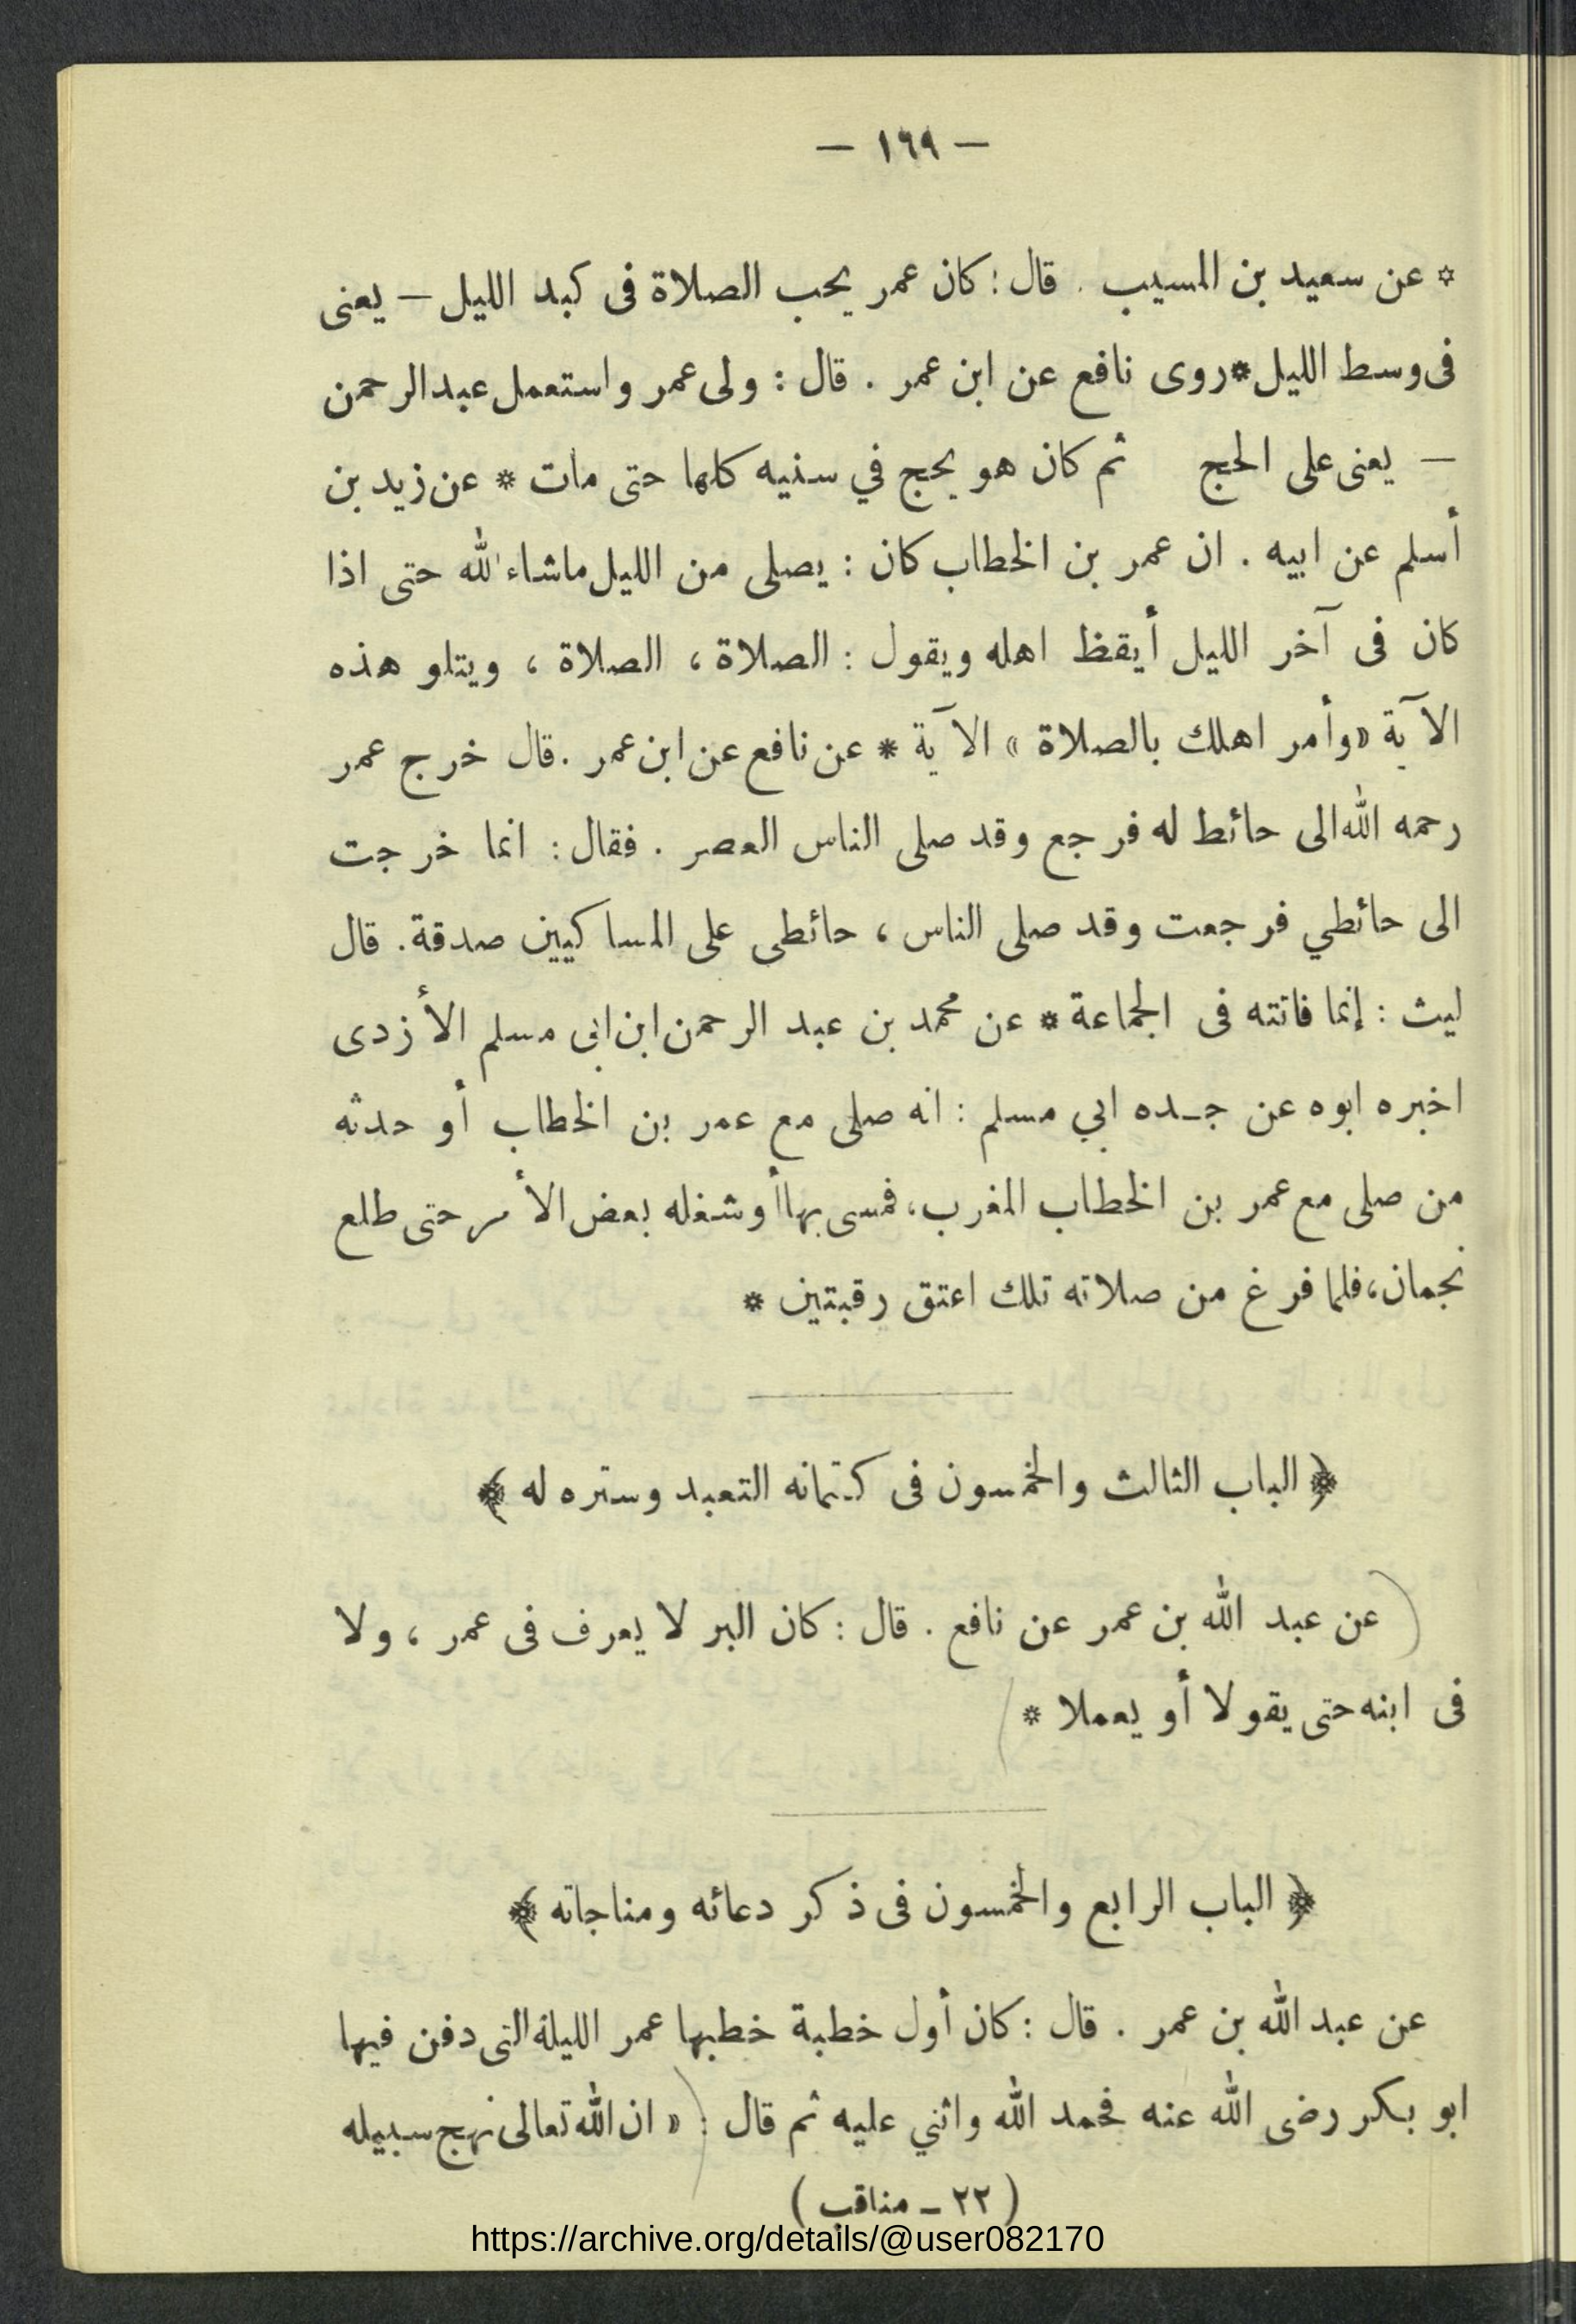 — ١٦٩ —
* عن سعيد بن المسيب . قال : كان عمر يحب الصلاة فى كبد الليل — يعنى
فى وسط الليل * روى نافع عن ابن عمر . قال : ولى عمر واستعمل عبد الرحمن
— يعنى على الحج ثم كان هو يحج في سنيه كلها حتى مات * عن زيد بن
أسلم عن ابيه . ان عمر بن الخطاب كان : يصلى من الليل ماشاء الله حتى اذا
كان فى آخر الليل أيقظ اهله ويقول : الصلاة ، الصلاة ، ويتلو هذه
الآية «وأمر اهلك بالصلاة » الآية * عن نافع عن ابن عمر . قال خرج عمر
رحمه الله الى حائط له فرجع وقد صلى الناس العصر . فقال : انما خرجت
الى حائطي فرجعت وقد صلى الناس ، حائطى على المساكيين صدقة . قال
ليث : إنما فاتته فى الجماعة * عن محمد بن عبد الرحمن ابن ابى مسلم الأزدى
اخبره ابوه عن جـده ابي مسلم : انه صلى مع عمر بن الخطاب أو حدثه
من صلى مع عمر بن الخطاب المغرب ، فمسى بها أو شغله بعض الأمر حتى طلع
نجمان ، فلما فرغ من صلاته تلك اعتق رقبتين *
﴿ الباب الثالث والخمسون فى كتمانه التعبد وستره له ﴾
عن عبد الله بن عمر عن نافع . قال : كان البر لا يعرف فى عمر ، ولا
فى ابنه حتى يقولا أو يعملا *
﴿ الباب الرابع والخمسون فى ذكر دعائه ومناجاته ﴾
عن عبد الله بن عمر . قال : كان أول خطبة خطبها عمر الليلة التى دفن فيها
ابو بكر رضى الله عنه فحمد الله واثني عليه ثم قال : « ان الله تعالى نهج سبيله
( ٢٢ – مناقب )
https://archive.org/details/@user082170